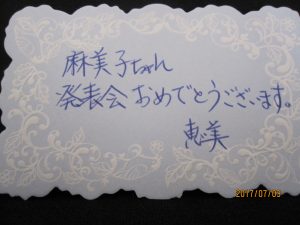 麻美子ちゃん
発表会おめでとうございます。
恵美
2017/07/09